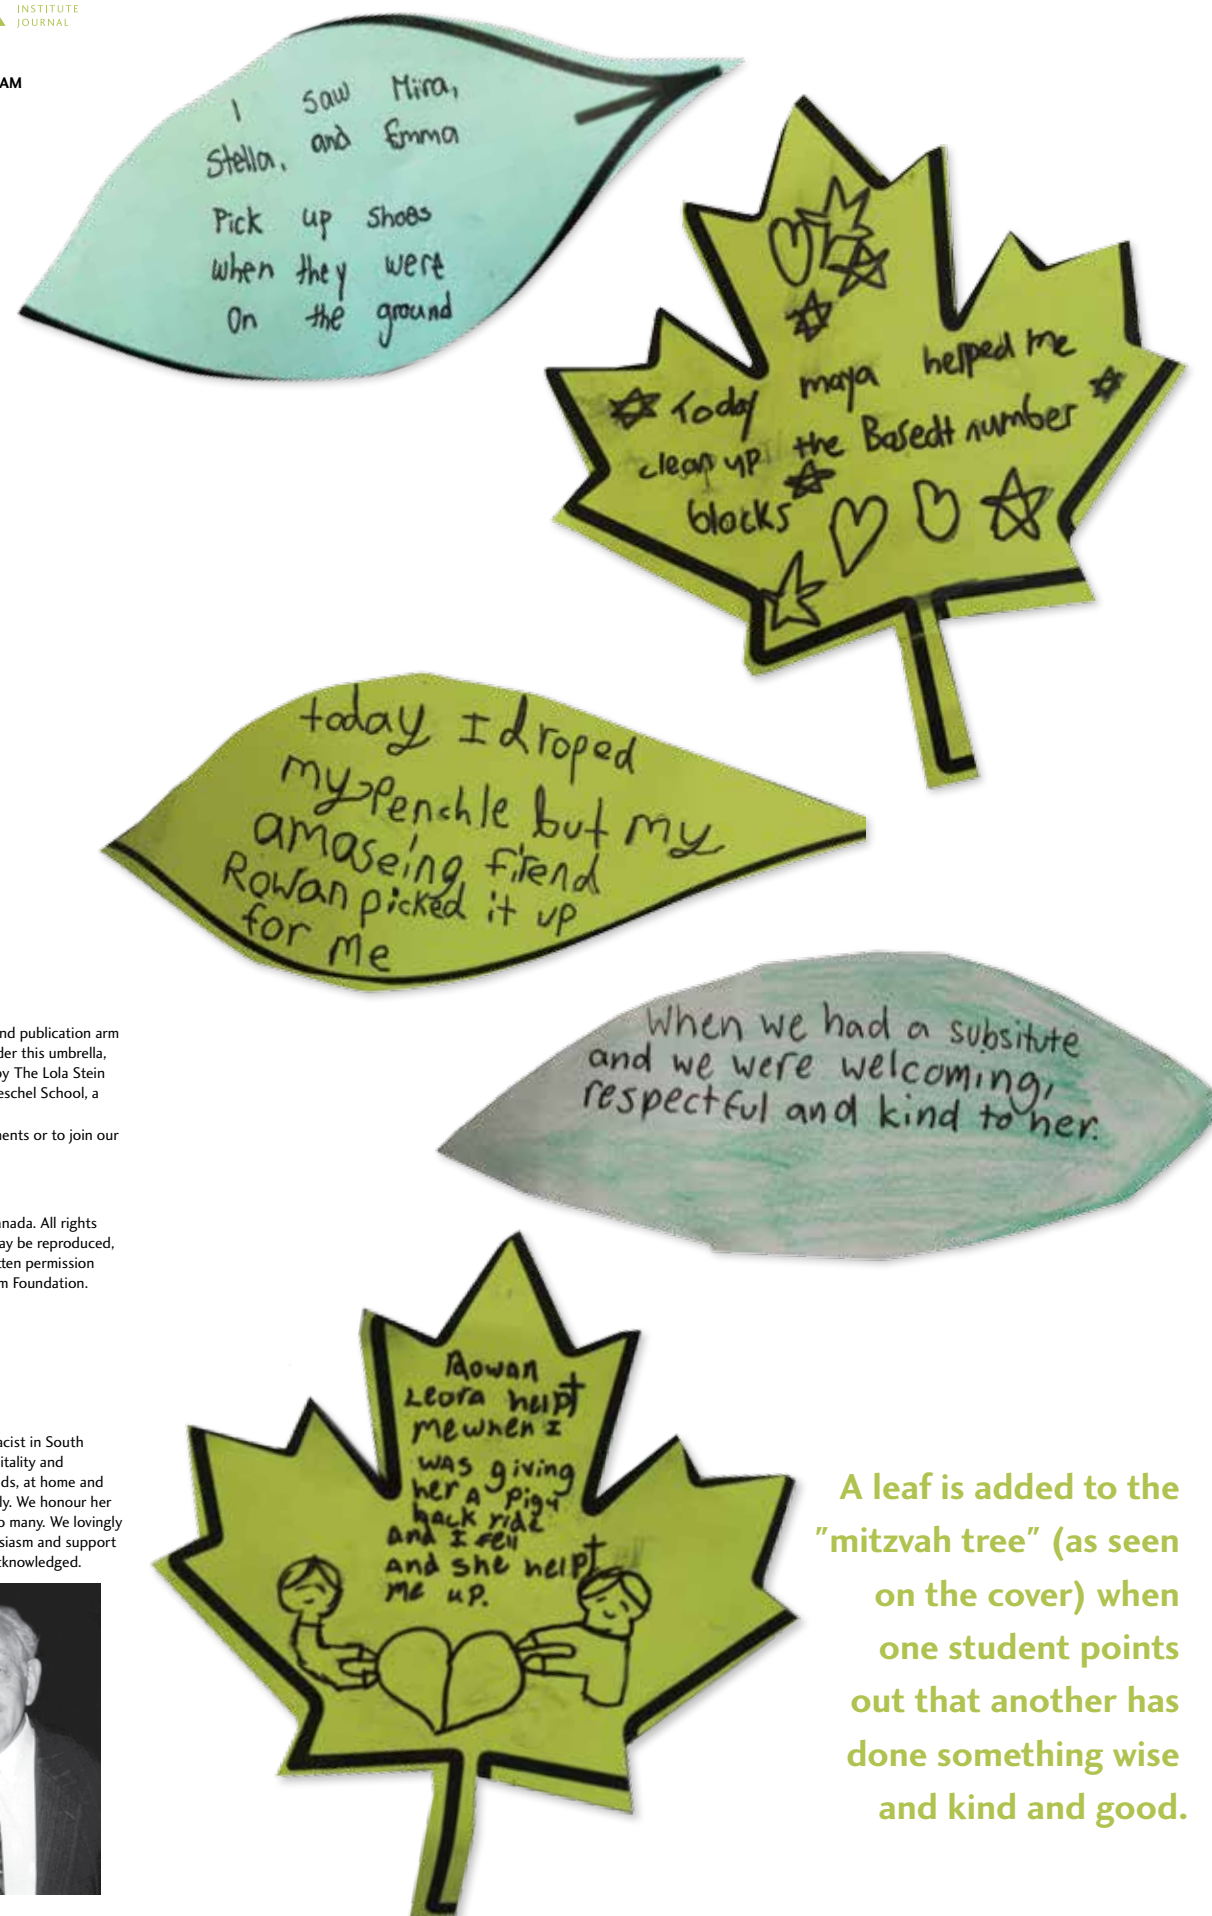 INSTITUTE
JOURNAL
AM
I saw Mira,
Stella, and Emma
Pick up shoes
when they were
On the ground
Today maya helped me
clean up the Base number
blocks
today I droped
my Penchle but my
amaseing firend
Rowan picked it up
for me
When we had a subsitute
and we were welcoming,
respectful and kind to her.
nd publication arm
der this umbrella,
by The Lola Stein
eschel School, a
ments or to join our
anada. All rights
ay be reproduced,
tten permission
m Foundation.
Rowan
Leora helpt
me when I
was giving
her a Pigy
back ride
and I fell
and she helpt
me up.
acist in South
itality and
ds, at home and
ly. We honour her
o many. We lovingly
siasm and support
cknowledged.
A leaf is added to the
"mitzvah tree" (as seen
on the cover) when
one student points
out that another has
done something wise
and kind and good.